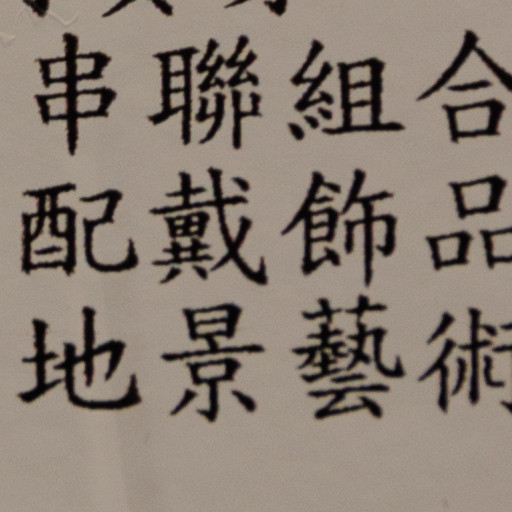 串聯組合
配戴飾品
地景藝術